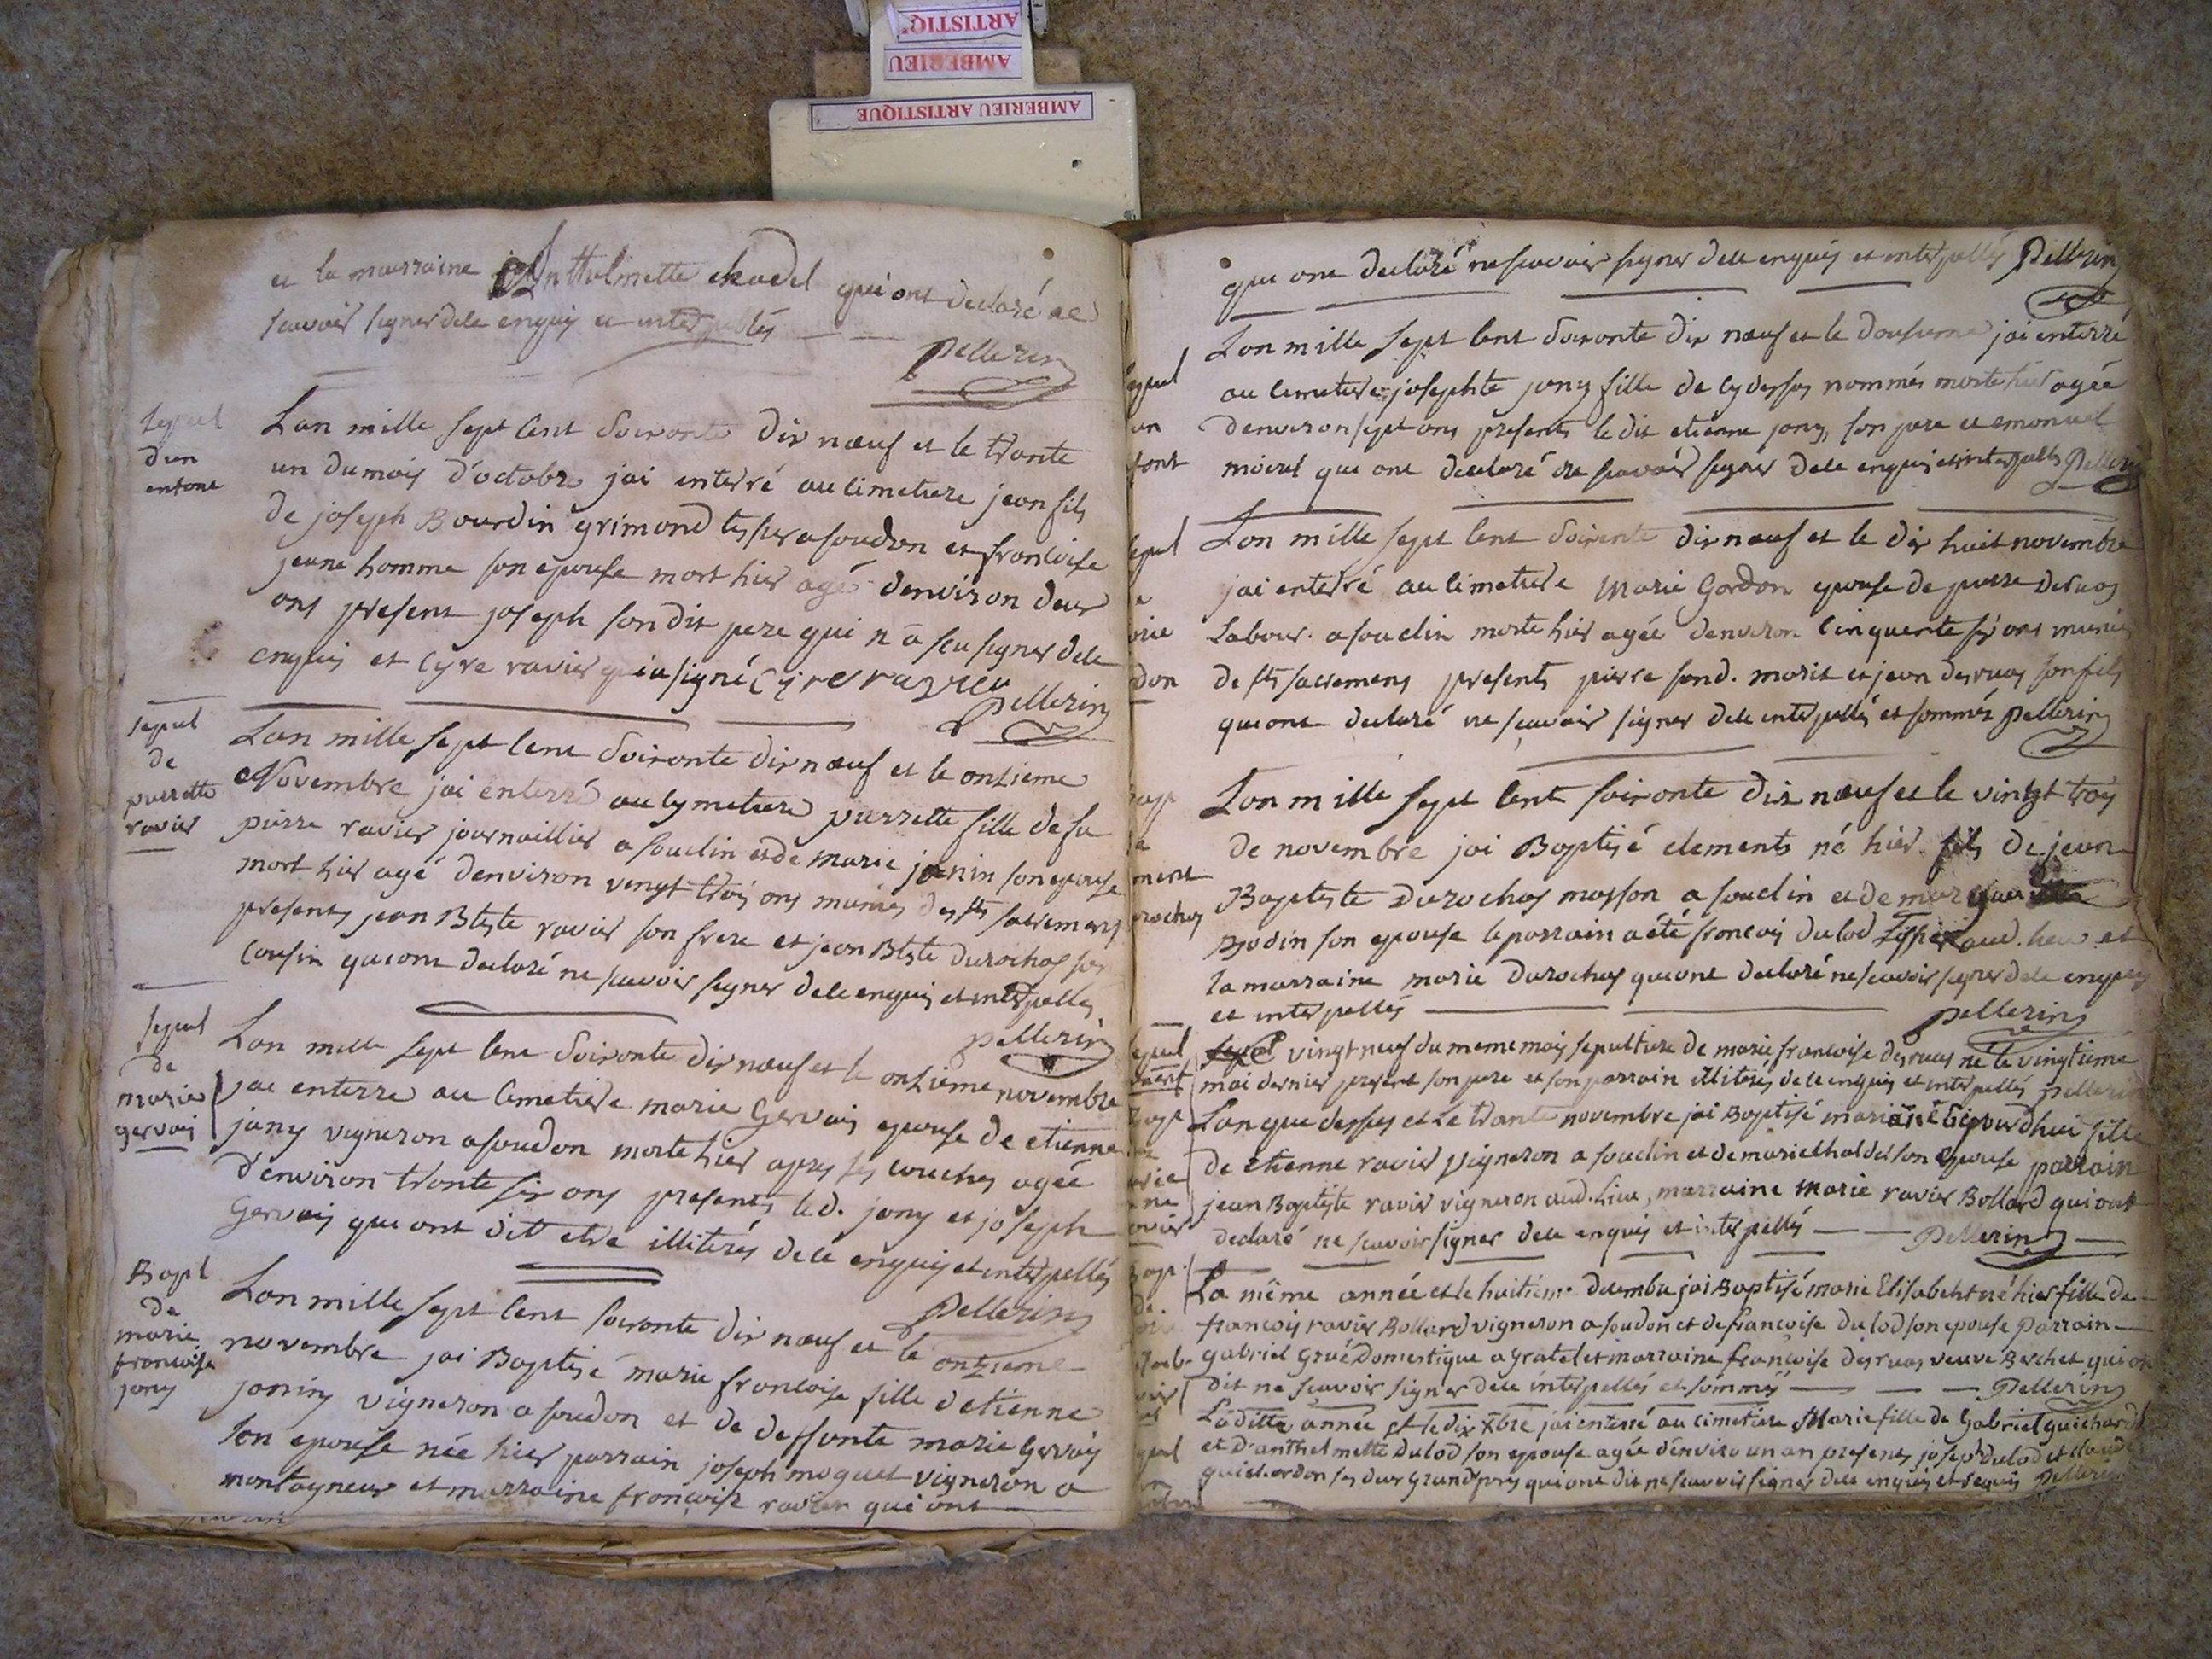 ARTISTIQ
AMBERIEU
AMBERIEU ARTISTIQUE
et la marraine Anthelmette chadel qui ont declaré ne
scavoir signer dele enquis et interpellés
pellerin
Sepul
d'un
enfant
L'an mille sept cent soixante dix neuf et le trante
un du mois d'octobre jai enterré au cimetiere jean fils
de joseph Bourdin grimond tissier a soudon et francoise
jeune homme son epouse mort hier agé denviron deux
ans present joseph son dit pere qui n'a scu signer dele
enquis et cyre ravier qui a signé Cyre ravier
pellerin
sepul
de
pierrette
ravier
L'an mille sept cent soixante dix neuf et le onzieme
Novembre jai enterré au cymetiere pierrette fille de fu
pierre ravier journaillier a souclin et de marie janin son epouse
mort hier agé denviron vingt trois ans munies des sts sacremens
presents jean Btste ravier son frere et jean Btste durochas son
Cousin qui ont declaré ne scavoir signer dele enquis et interpellés
pellerin
sepul
de
marie
gervais
L'an mille sept cent soixante dix neuf et le onzieme novembre
jai enterré au cimetiere marie Gervais epouse de etienne
jany vigneron a soudon morte hier apres ses couches agée
d'environ trante six ans presents led. jany et joseph
Gervais qui ont dit etre illitérés dele enquis et interpellés
pellerin
Bapt
de
marie
francoise
jany
L'an mille sept cent soixante dix neuf et le onzieme
novembre jai Baptisé marie francoise fille detienne
janiny vigneron a soudon et de deffunte marie Gervais
son epouse née hier parrain joseph moguet vigneron a
montagneux et marraine françoise ravier qui ont
que ont declaré ne scavoir signer dele enquis et interpellés Pellerin
sepul
un
fant
L'an mille sept cent soixante dix neuf et le dousieme jai enterré
au cimetiere josephte jany fille de cy dessus nommés morte hier agée
denviron sept ans presents le dit etienne jany son pere et emanuel
morel qui ont declaré ne scavoir signer dele enquis et interpellés Pellerin
sepul
e
rie
don
L'an mille sept cent soixante dix neuf et le dix huit novembre
jai enterré au cimetiere Marie Gordon epouse de pierre deruas
Labour. a souclin morte hier agée denviron cinquante six ans munies
de sts sacremens presents pierre sond. marit et jean desruas son fils
qui ont declaré ne scavoir signer dele interpellés et sommés pellerin
bapt
e
ment
rochas
L'an mille sept cent soixante dix neuf et le vingt trois
de novembre jai Baptisé clements né hier fils de jean
Baptiste Durochas masson a souclin et de marguerite
Bodin son epouse le parrain a été francois dulod tissier aud. lieu et
la marraine marie durochas qui ont declaré ne scavoir signer dele enquis
et interpellés
pellerin
sepul
vingt neuf du meme mois sepulture de marie francoise desruas né le vingtieme
mai dernier present son pere et son parrain illiterés dele enquis et interpellés pellerin
bapt
rie
ne
avier
L'an que dessus et le trante novembre jai Baptisé mariane né aujourdhui fille
de etienne ravier vigneron a souclin et de marie chaldel son epouse parrain
jean Baptiste ravier vigneron aud. lieu, marraine marie ravier Bollard qui ont
declaré ne scavoir signer dele enquis et interpellés Pellerin
bap.
de
La même année et le huitieme decembre jai Baptisé marie Elisabeht né hier fille de
francois ravier Bollard vigneron a soudon et de francoise dulod son epouse Parrain
Gabriel Grué domestique a Gratel et marraine françoise desruas veuve Berchet qui ont
dit ne scavoir signer dele interpellés et sommés Pellerin
sepul
Laditte année et le dix Xbre jai enterré au cimetiere Marie fille de Gabriel guichardon
et d'anthelmette dulod son epouse agée d'enviro un an presents joseph dulod et claude
guichardon ses deux Grand peres qui ont dit ne scavoir signer dele enquis et requis Pellerin